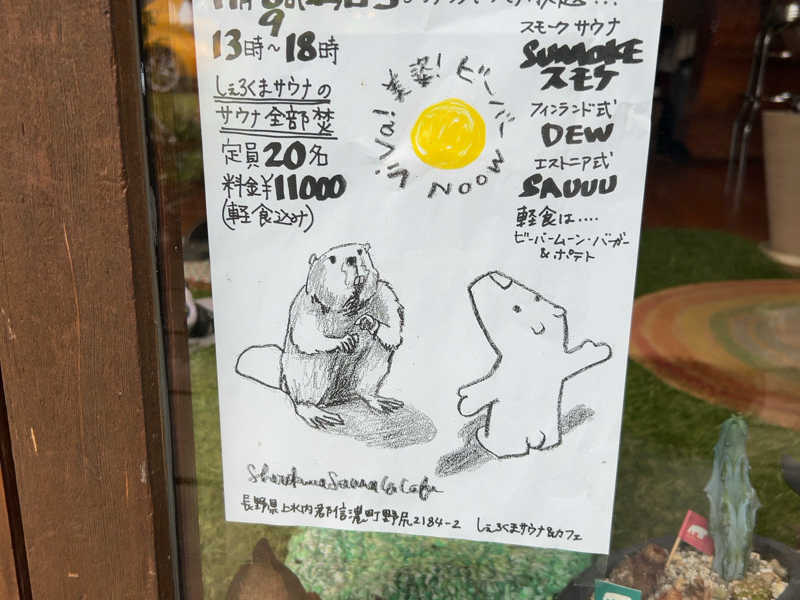 13時〜18時
しぇろくまサウナの
サウナ全部焚
定員20名
料金¥11000
(軽食込み)
Viva! 美姿! ビーバー MOON
スモークサウナ
SUMOKE
スモケ
フィンランド式
DEW
エストニア式
SAUUU
軽食は‥‥
ビーバームーン・バーガー
&ポテト
長野県上水内郡信濃町野尻2184-2 しぇろくまサウナ&カフェ